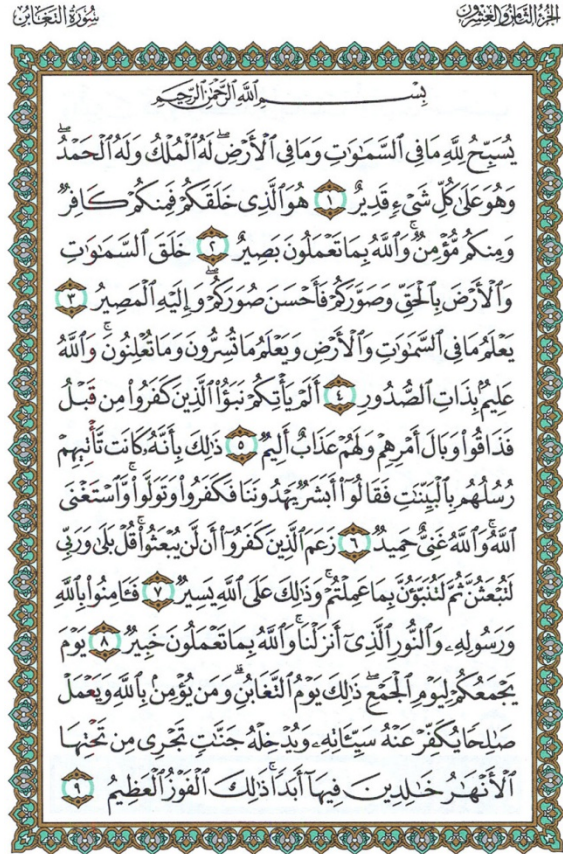 الجزء الثامن والعشرون
سورة التغابن
بِسْمِ ٱللَّهِ ٱلرَّحْمَٰنِ ٱلرَّحِيمِ
يُسَبِّحُ لِلَّهِ مَا فِى ٱلسَّمَٰوَٰتِ وَمَا فِى ٱلْأَرْضِ ۖ لَهُ ٱلْمُلْكُ وَلَهُ ٱلْحَمْدُ ۖ
وَهُوَ عَلَىٰ كُلِّ شَىْءٍ قَدِيرٌ ١ هُوَ ٱلَّذِى خَلَقَكُمْ فَمِنكُمْ كَافِرٌ
وَمِنكُم مُّؤْمِنٌ ۚ وَٱللَّهُ بِمَا تَعْمَلُونَ بَصِيرٌ ٢ خَلَقَ ٱلسَّمَٰوَٰتِ
وَٱلْأَرْضَ بِٱلْحَقِّ وَصَوَّرَكُمْ فَأَحْسَنَ صُوَرَكُمْ ۖ وَإِلَيْهِ ٱلْمَصِيرُ ٣
يَعْلَمُ مَا فِى ٱلسَّمَٰوَٰتِ وَٱلْأَرْضِ وَيَعْلَمُ مَا تُسِرُّونَ وَمَا تُعْلِنُونَ ۚ وَٱللَّهُ
عَلِيمٌۢ بِذَاتِ ٱلصُّدُورِ ٤ أَلَمْ يَأْتِكُمْ نَبَؤُا۟ ٱلَّذِينَ كَفَرُوا۟ مِن قَبْلُ
فَذَاقُوا۟ وَبَالَ أَمْرِهِمْ وَلَهُمْ عَذَابٌ أَلِيمٌ ٥ ذَٰلِكَ بِأَنَّهُۥ كَانَت تَّأْتِيهِمْ
رُسُلُهُم بِٱلْبَيِّنَٰتِ فَقَالُوٓا۟ أَبَشَرٌ يَهْدُونَنَا فَكَفَرُوا۟ وَتَوَلَّوا۟ ۚ وَّٱسْتَغْنَى
ٱللَّهُ ۚ وَٱللَّهُ غَنِىٌّ حَمِيدٌ ٦ زَعَمَ ٱلَّذِينَ كَفَرُوٓا۟ أَن لَّن يُبْعَثُوا۟ ۚ قُلْ بَلَىٰ وَرَبِّى
لَتُبْعَثُنَّ ثُمَّ لَتُنَبَّؤُنَّ بِمَا عَمِلْتُمْ ۚ وَذَٰلِكَ عَلَى ٱللَّهِ يَسِيرٌ ٧ فَـَٔامِنُوا۟ بِٱللَّهِ
وَرَسُولِهِۦ وَٱلنُّورِ ٱلَّذِىٓ أَنزَلْنَا ۚ وَٱللَّهُ بِمَا تَعْمَلُونَ خَبِيرٌ ٨ يَوْمَ
يَجْمَعُكُمْ لِيَوْمِ ٱلْجَمْعِ ۖ ذَٰلِكَ يَوْمُ ٱلتَّغَابُنِ ۗ وَمَن يُؤْمِنۢ بِٱللَّهِ وَيَعْمَلْ
صَٰلِحًا يُكَفِّرْ عَنْهُ سَيِّـَٔاتِهِۦ وَيُدْخِلْهُ جَنَّٰتٍ تَجْرِى مِن تَحْتِهَا
ٱلْأَنْهَٰرُ خَٰلِدِينَ فِيهَآ أَبَدًا ۚ ذَٰلِكَ ٱلْفَوْزُ ٱلْعَظِيمُ ٩